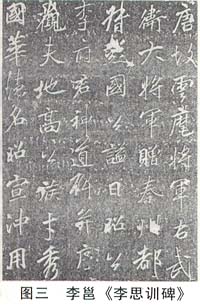 唐故雲麾將軍右武
衛大將軍贈秦州都
督彭國公謚曰昭公
李府君神道碑并序
觀夫地高公族才秀
國華德名昭宣沖用
图三 李邕《李思训碑》